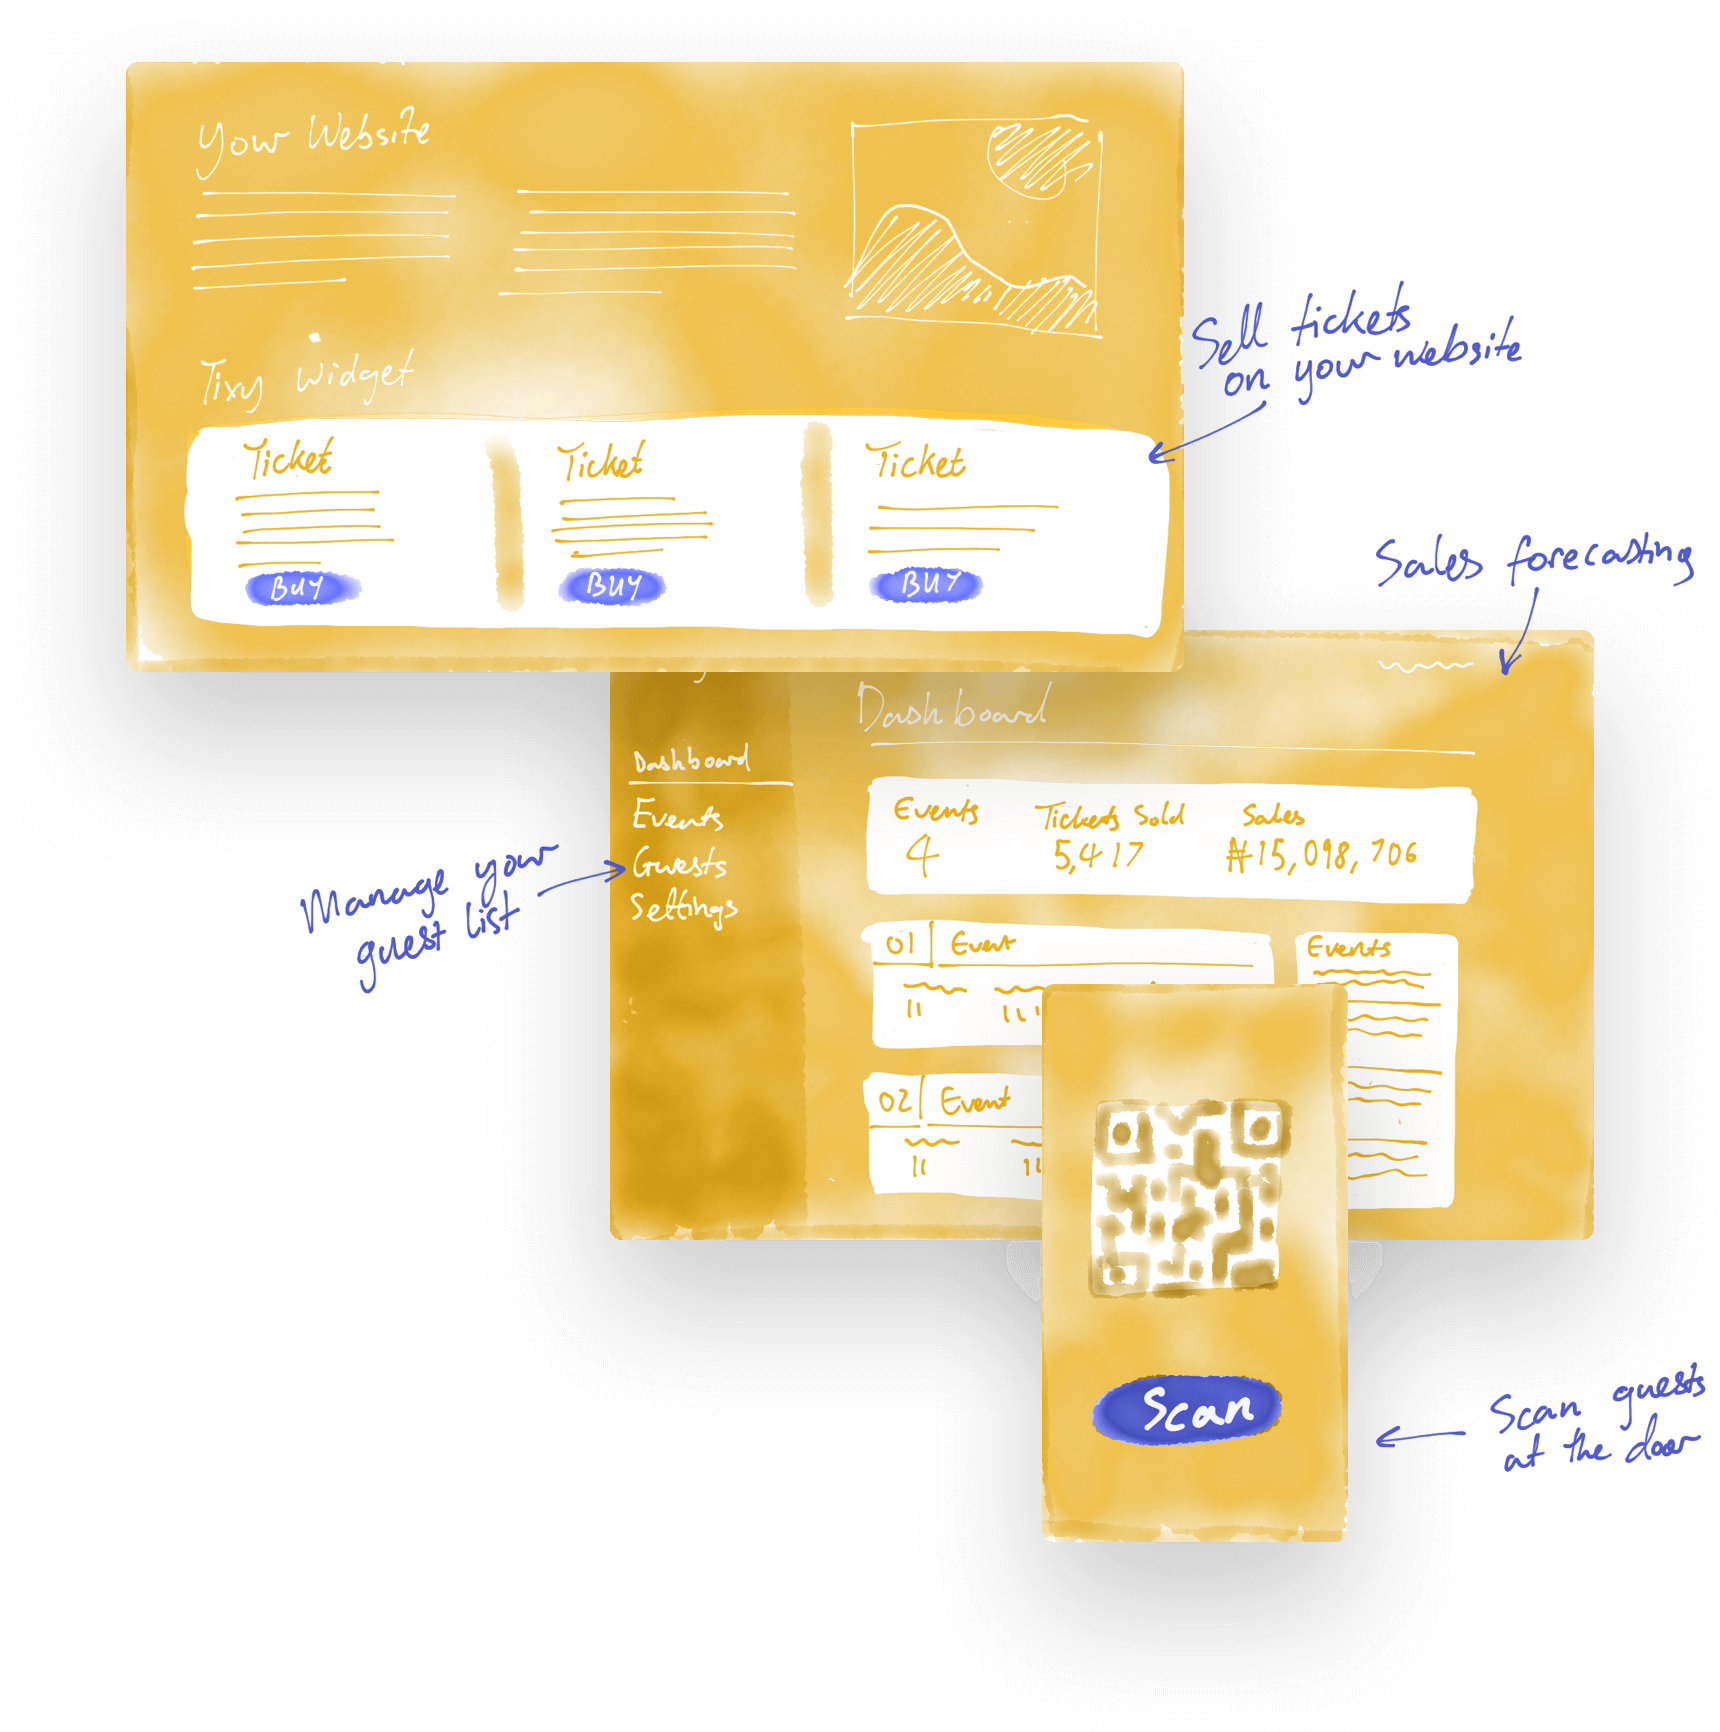 Your Website
Tixy Widget
Ticket
BUY
Ticket
BUY
Ticket
BUY
Sell tickets
on your website
Sales forecasting
Dashboard
Events
Guests
Settings
Manage your
guest list
Dashboard
Events
4
Tickets Sold
5,417
Sales
₦15,098,706
01 Event
02 Event
Events
Scan
Scan guests
at the door